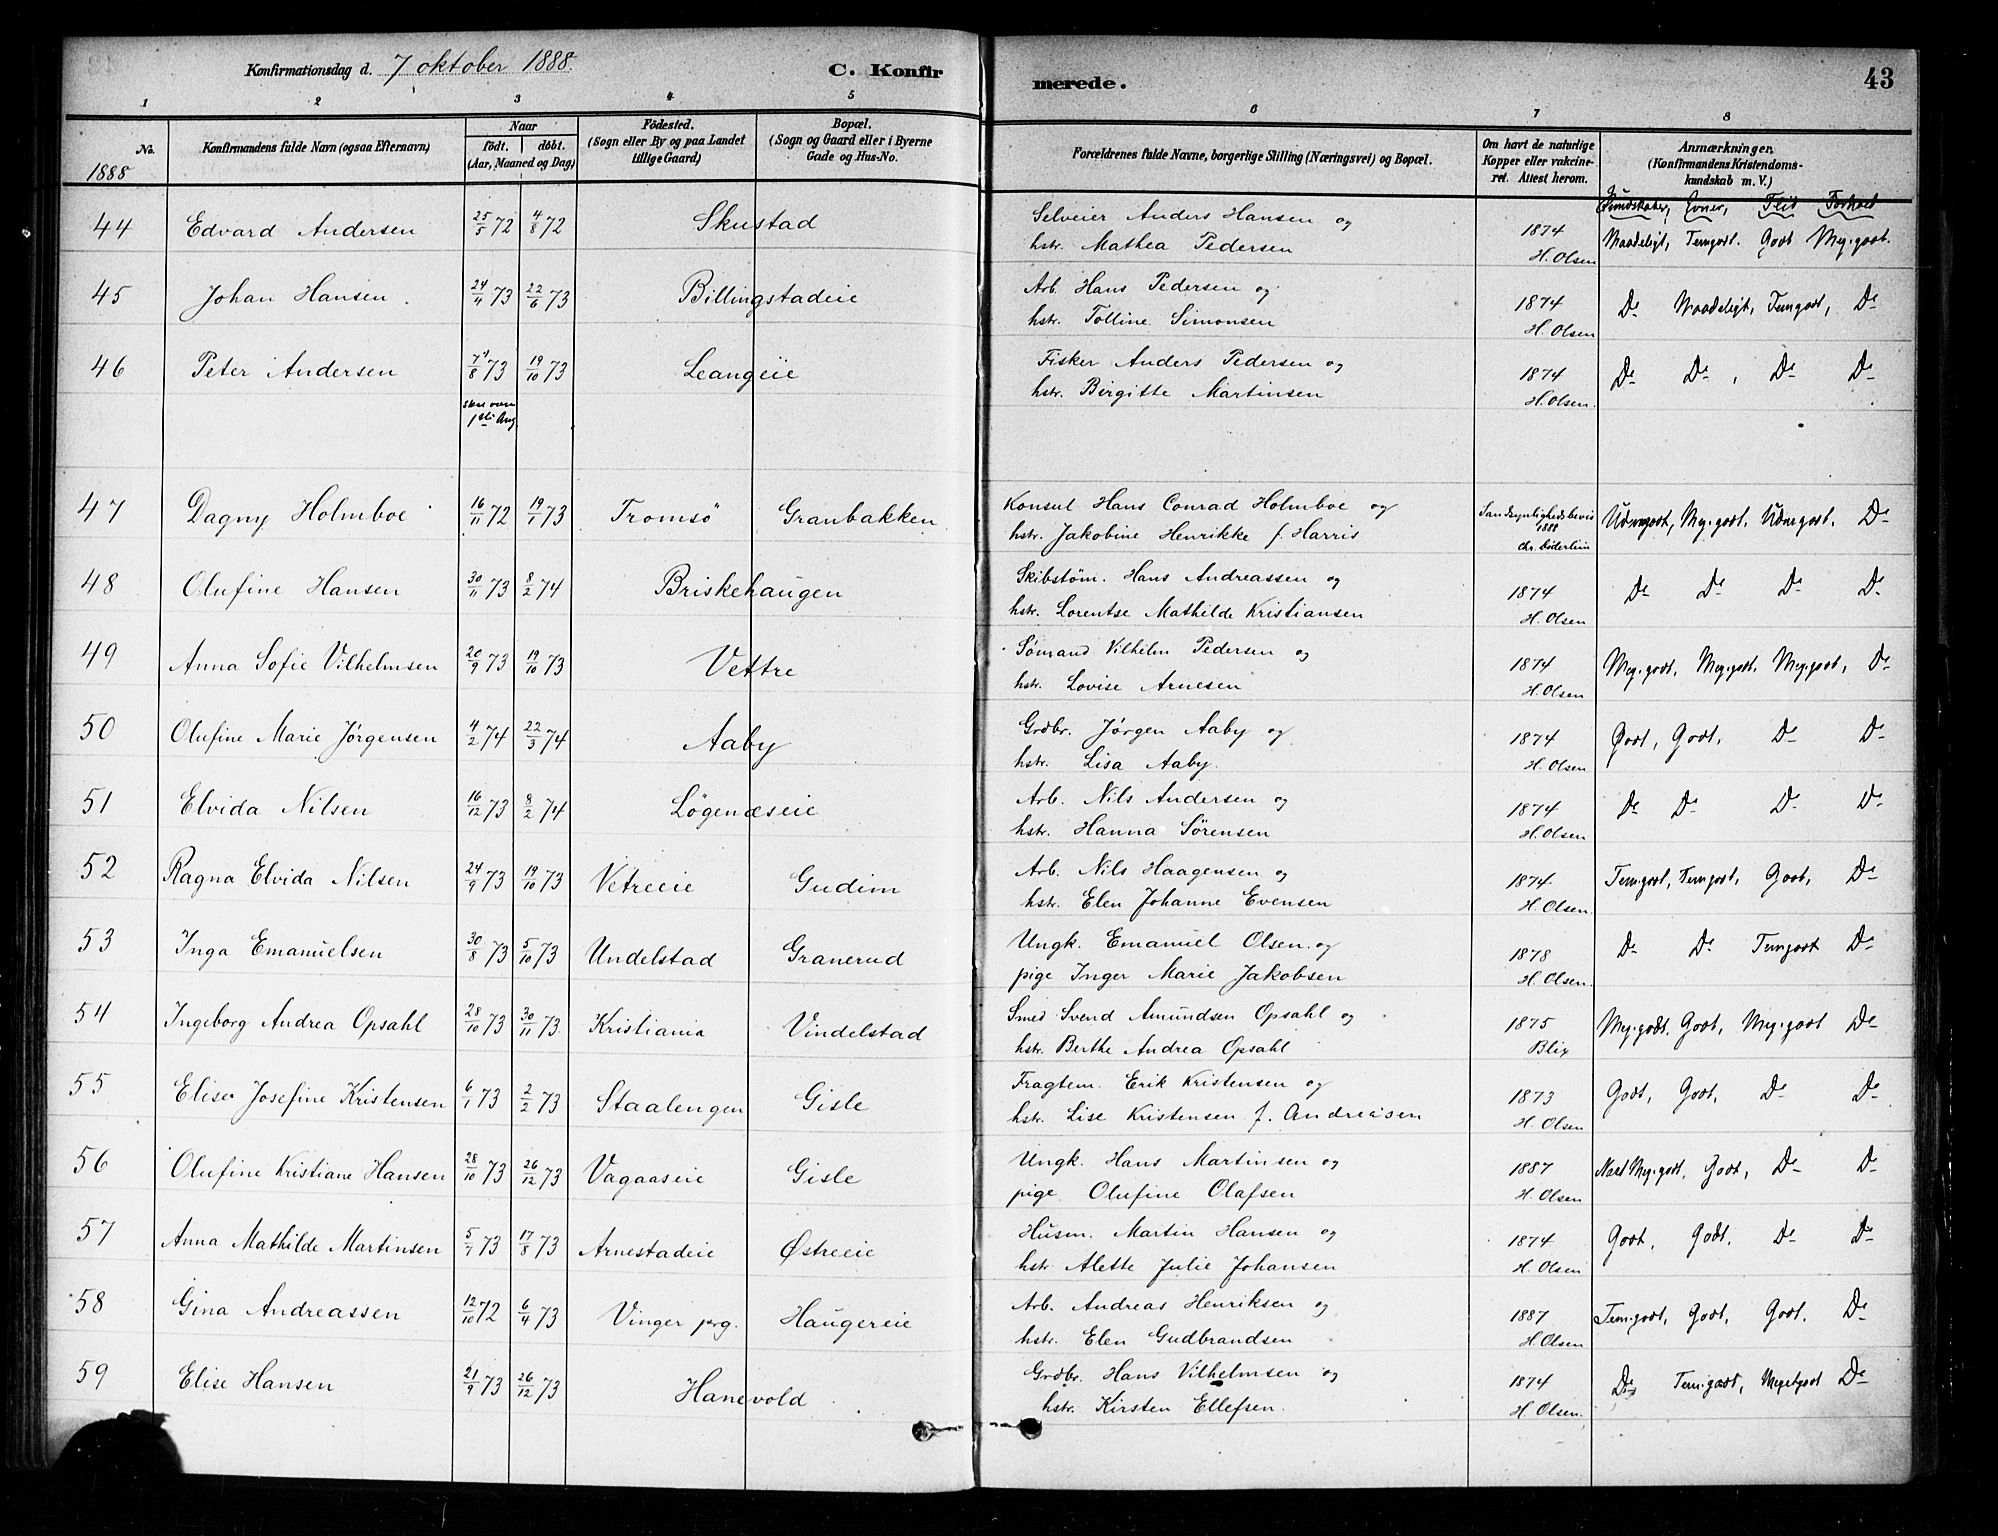 Konfirmationsdag d. 7 oktober 1888. C. Konfir merede. 43
1 2 3 4 5 6 7 8
No. Konfirmandens fulde Navn (ogsaa Efternavn) Naar Födested. Bopæl. Forældrenes fulde Navne, borgerlige Stilling (Næringsvei) og Bopæl. Om havt de naturlige Anmærkninger.
född. döbt. (Sogn eller By og paa Landet (Sogn og Gaard eller i Byerne Kopper eller vakcine- (Konfirmandens Kristendoms-
(Aar, Maaned og Dag) tillige Gaard) Gade og Hus-No. ret. Attest herom. kundskab m. V.)
1888 Kundskaber, Evner, Flid Forhold
44 Edvard Andersen 25/5 72 4/8 72 Skustad Selveier Anders Hansen og 1874 Maadeligt, Temgodt. Godt Meg. godt.
hstr. Mathea Pedersen H. Olsen
45 Johan Hansen. 24/4 73 22/6 73 Billingstadeie Arb. Hans Pedersen og 1874 Do Maadeligt, Temgodt, Do
hstr. Tolline Simonsen H. Olsen
46 Peter Andersen 7/8 73 19/10 73 Leangeie Fisker Anders Pedersen og 1874 Do Do, Do Do
skal være hstr. Birgitte Martinsen H. Olsen.
1ste Aug
47 Dagny Holmboe 16/11 72 19/1 73 Tromsö Granbakken Konsul Hans Conrad Holmboe og Sandsynlighedsbevis Udmgodt, Meg. godt, Udmgodt, Do
1888
hstr. Jakobine Henrikke f. Harris Chr. Döderlein
48 Olufine Hansen 30/11 73 8/2 74 Briskehaugen Skibstøm. Hans Andreassen og 1874 Do Do Do Do
hstr. Lorentse Mathilde Kristiansen H. Olsen
49 Anna Sofie Vilhelmsen 20/9 73 19/10 73 Vettre Sømand Vilhelm Pedersen og 1874 Meg. godt, Meg. godt, Meg. godt, Do
hstr. Lovise Arnesen H. Olsen
50 Olufine Marie Jørgensen 4/2 74 22/3 74 Aaby Grdbr. Jørgen Aaby og 1874 Godt, Godt, Do Do
hstr. Lisa Aaby. H. Olsen
51 Elvida Nilsen 16/12 73 8/2 74 Løgenæseie Arb. Nils Andersen og 1874 Do Do Do Do
hstr. Hanna Sørensen H. Olsen
52 Ragna Elvida Nilsen 24/9 73 19/10 73 Vetreeie Gudim Arb. Nils Haagensen og 1874 Temgodt, Temgodt, Godt, Do
hstr. Elen Johanne Evensen H. Olsen
53 Inga Emanuelsen 30/8 73 5/10 73 Undelstad Granerud Ungk. Emanuel Olsen og 1878 Do Do Temgodt Do
pige Inger Marie Jakobsen H. Olsen.
54 Ingeborg Andrea Opsahl 28/10 73 30/11 73 Kristiania Vindelstad Smed Svend Amundsen Opsahl og 1875 Meg. godt. Godt, Meg. godt Do
hstr. Berthe Andrea Opsahl Blix
55 Elise Josefine Kristensen 6/1 73 2/2 73 Staalengen Gisle Fragtem. Erik Kristensen og 1873 Godt, Godt, Do Do
hstr. Lise Kristensen f. Andreasen H. Olsen
56 Olufine Kristiane Hansen 28/10 73 26/12 73 Vagaaseie Gisle Ungk. Hans Martinsen og 1887 Næst Meg. godt, Godt, Do Do
pige Olufine Olafsen H. Olsen
57 Anna Mathilde Martinsen 5/7 73 17/8 73 Arnestadeie Østreeie Husm. Martin Hansen og 1874 Godt, Godt. Do Do
hstr Alette Julie Johansen H. Olsen
58 Gina Andreassen 12/10 72 6/4 73 Vinger prg. Haugereie Arb. Andreas Henriksen og 1887 Temgodt, Godt, Godt. Do
hstr. Elen Gudbrandsen H. Olsen
59 Elise Hansen 21/9 73 26/12 73 Hanevold Grdbr. Hans Vilhelmsen og 1874 Do Temgodt, Megetgodt Do
hstr. Kirsten Ellefsen. H. Olsen.